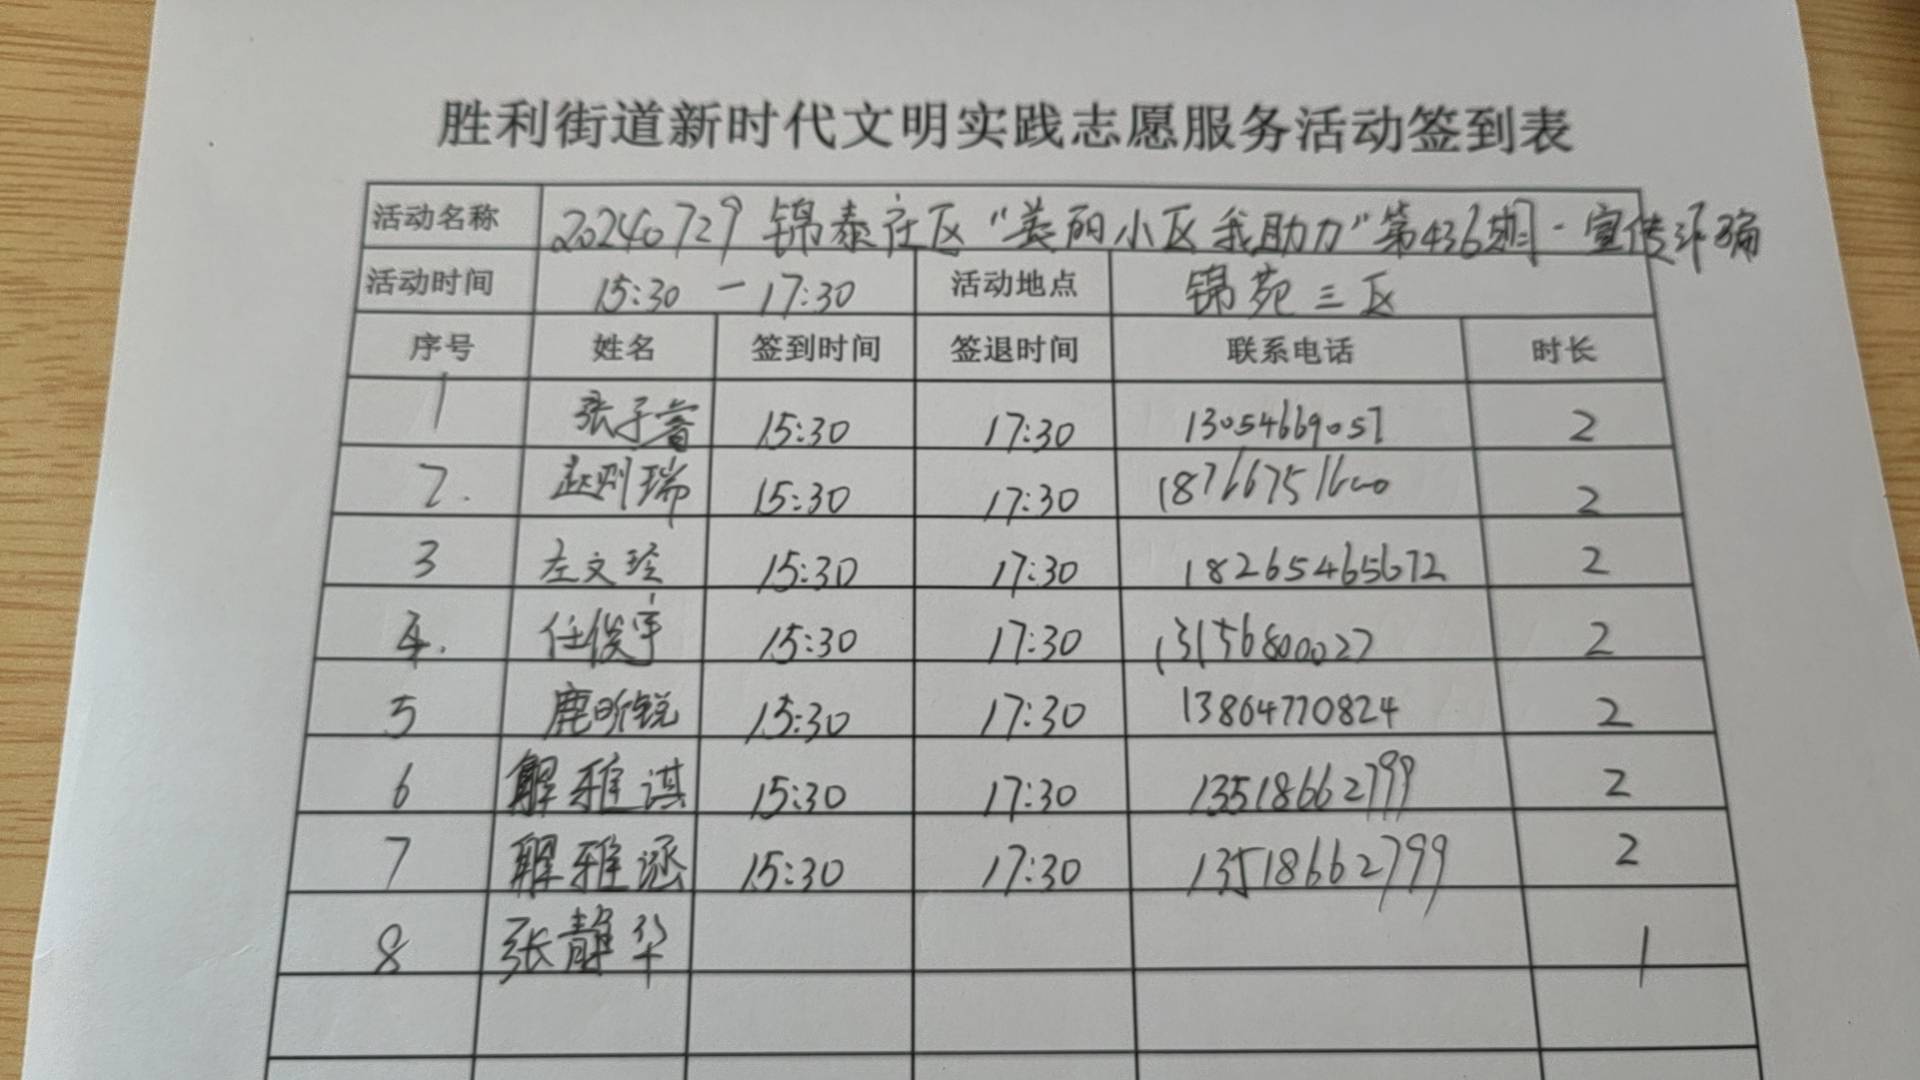 胜利街道新时代文明实践志愿服务活动签到表
活动名称 20240729 锦泰社区“美丽小区我助力”第436期·宣传环
活动时间 15:30 — 17:30 活动地点 锦苑三区
序号 姓名 签到时间 签退时间 联系电话 时长
1 张子 15:30 17:30 13054669057 2
2. 赵 瑞 15:30 17:30 18766751600 2
3 左文 15:30 17:30 18265465672 2
4. 任俊宇 15:30 17:30 13156800027 2
5 鹿昕锐 15:30 17:30 13864770824 2
6 解雅淇 15:30 17:30 13518662799 2
7 解雅涵 15:30 17:30 13518662799 2
8 张静华 1